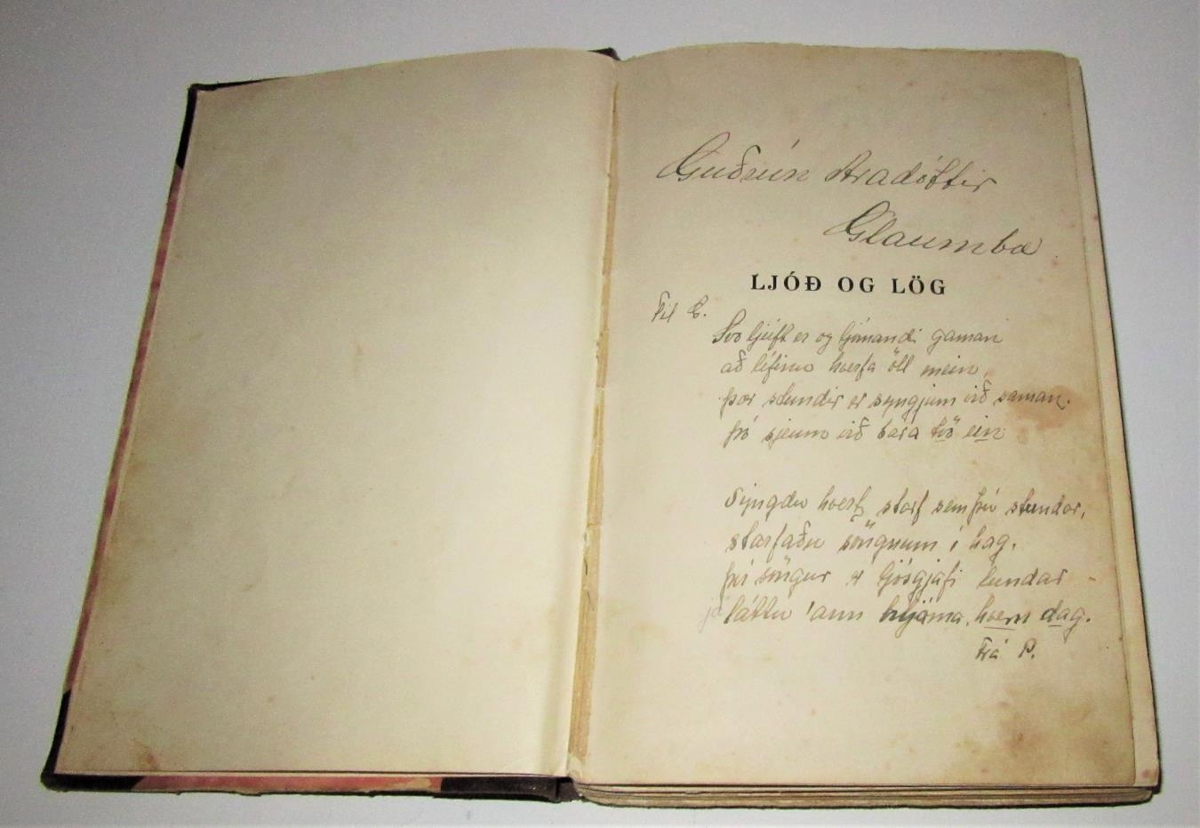 Guðrún Aradóttir
Glaumbæ
LJÓÐ OG LÖG
Til G.
Svo ljúft er og ljómandi gaman
að lífinu hverfa öll mein,
þær stundir er syngjum við saman.
þó sjeum við bara tvö ein
Syngdu hvert starf sem þú stundar,
starfaðu söngnum í hag.
því söngur er ljósgjafi lundar -
já láttu 'ann hljóma, hvern dag.
Frá P.